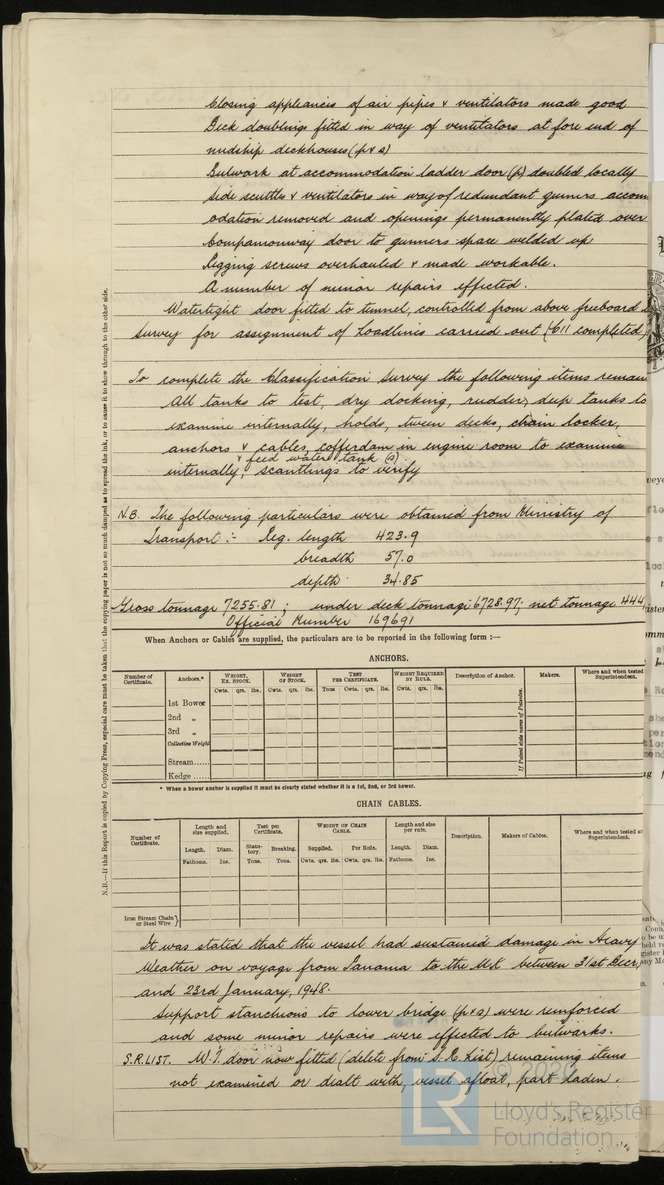 Closing appliances of air pipes & ventilators made good
Deck doublings fitted in way of ventilators at fore end of
midship deckhouses (p & s)
Bulwark at accommodation ladder door (p) doubled locally
Side scuttles & ventilators in way of redundant gunners accom
odation removed and openings permanently plated over
Companionway door to gunners space welded up
Rigging screws overhauled & made workable.
A number of minor repairs effected.
Watertight door fitted to tunnel, controlled from above freeboard
Survey for assignment of Loadlines carried out (611 completed)
To complete the Classification Survey the following items remain
All tanks to test, dry docking, rudder, deep tanks to
examine internally, holds, tween decks, chain locker,
anchors & cables, cofferdam in engine room to examine
& feed water tank (s)
internally, scantlings to verify
N.B. The following particulars were obtained from Ministry of
Transport :- Reg. length 423.9
breadth 57.0
depth 34.85
Gross tonnage 7255.81 ; under deck tonnage 6728.97; net tonnage 444
Official Number 169691
When Anchors or Cables are supplied, the particulars are to be reported in the following form :—
ANCHORS.
Number of Certificate. Anchors.* WEIGHT, EX. STOCK. WEIGHT OF STOCK. TEST PER CERTIFICATE. WEIGHT REQUIRED BY RULE. Description of Anchor. Makers. Where and when tested Superintendent.
Cwts. qrs. lbs. Cwts. qrs. lbs. Tons Cwts. qrs. lbs. Cwts. qrs. lbs.
1st Bower
2nd „
3rd „
Collective Weight
Stream......
Kedge ......
If Patent state name of Patentee.
* When a bower anchor is supplied it must be clearly stated whether it is a 1st, 2nd, or 3rd bower.
CHAIN CABLES.
Number of Certificate. Length and size supplied. Test per Certificate. WEIGHT OF CHAIN CABLE. Length and size per rule. Description. Makers of Cables. Where and when tested Superintendent.
Length. Diam. Statutory. Breaking. Supplied. Per Rule. Length. Diam.
Fathoms. Ins. Tons. Tons. Cwts. qrs. lbs. Cwts. qrs. lbs. Fathoms. Ins.
Iron Stream Chain or Steel Wire }
It was stated that the vessel had sustained damage in Heavy
Weather on voyage from Panama to the U.K. between 31st Decr,
and 23rd January, 1948.
Support stanchions to lower bridge (p & s) were reinforced
and some minor repairs were effected to bulwarks.
S.R. LIST. W.T. door now fitted (delete from S.R. List) remaining items
not examined or dealt with, vessel afloat, part laden.
N.B.—If this Report is copied by Copying Press, especial care must be taken that the copying paper is not so much damped as to spread the ink, or to cause it to show through to the other side.
© 2020
LR
Lloyd's Register
Foundation